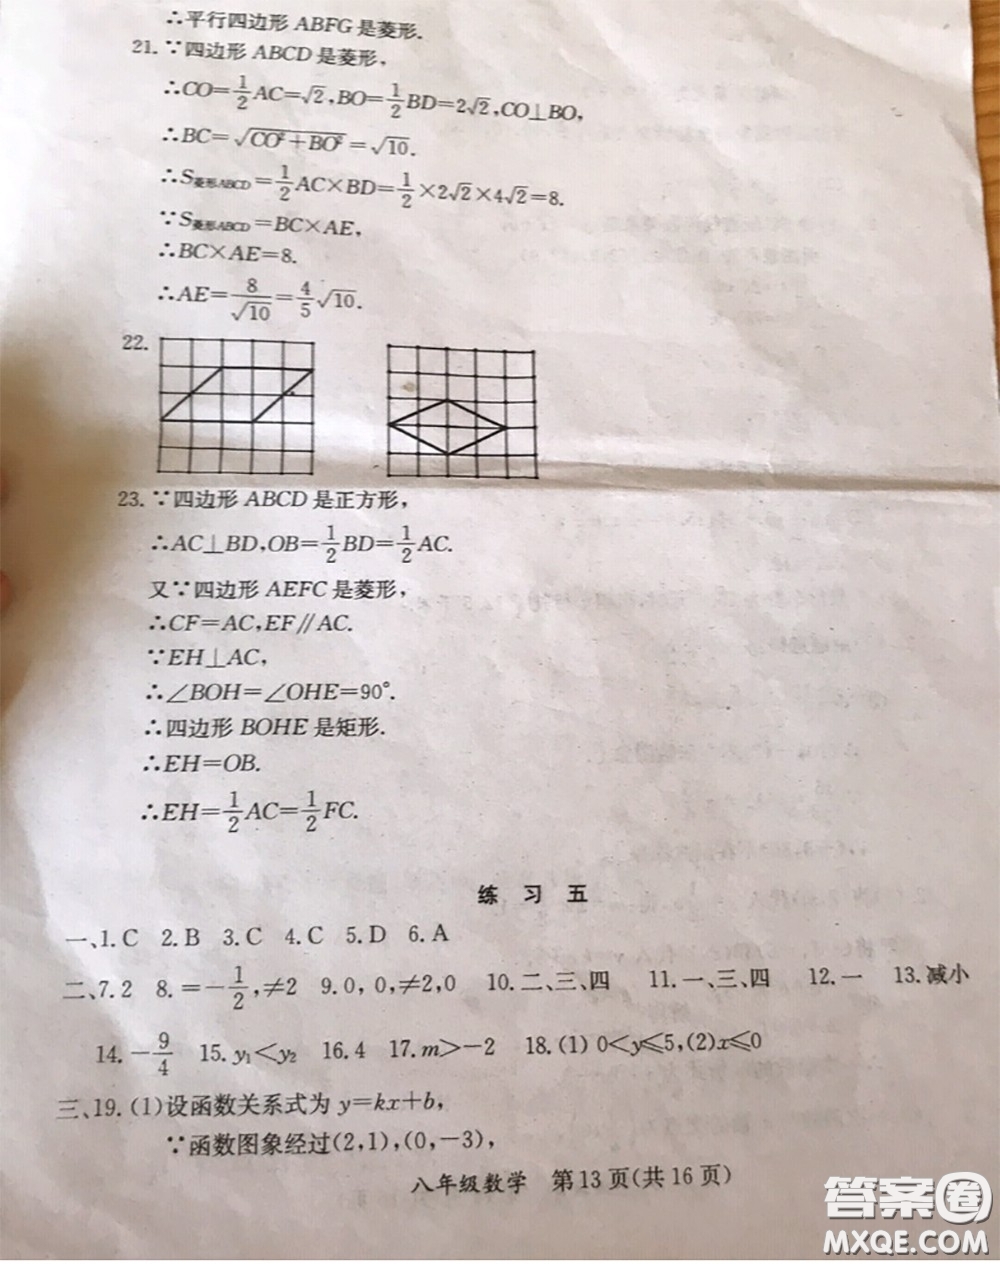 ∴平行四边形 ABFG 是菱形.
21. ∵四边形 ABCD 是菱形,
∴CO=1/2AC=√2,BO=1/2BD=2√2,CO⊥BO,
∴BC=√(CO²+BO²)=√10.
∴S菱形ABCD=1/2AC×BD=1/2×2√2×4√2=8.
∵S菱形ABCD=BC×AE,
∴BC×AE=8.
∴AE=8/√10=4/5√10.
22.
23. ∵四边形 ABCD 是正方形,
∴AC⊥BD,OB=1/2BD=1/2AC.
又∵四边形 AEFC 是菱形,
∴CF=AC,EF∥AC.
∵EH⊥AC,
∴∠BOH=∠OHE=90°.
∴四边形 BOHE 是矩形.
∴EH=OB.
∴EH=1/2AC=1/2FC.
练 习 五
一、1.C 2.B 3.C 4.C 5.D 6.A
二、7.2 8.=-1/2,≠2 9.0,0,≠2,0 10.二、三、四 11.一、三、四 12.一 13.减小
14.-9/4 15.y₁<y₂ 16.4 17.m>-2 18.(1) 0<y≤5,(2)x≤0
三、19.(1)设函数关系式为 y=kx+b,
∵函数图象经过(2,1),(0,-3),
八年级数学 第13页(共16页)
答案圈
MXQE.COM